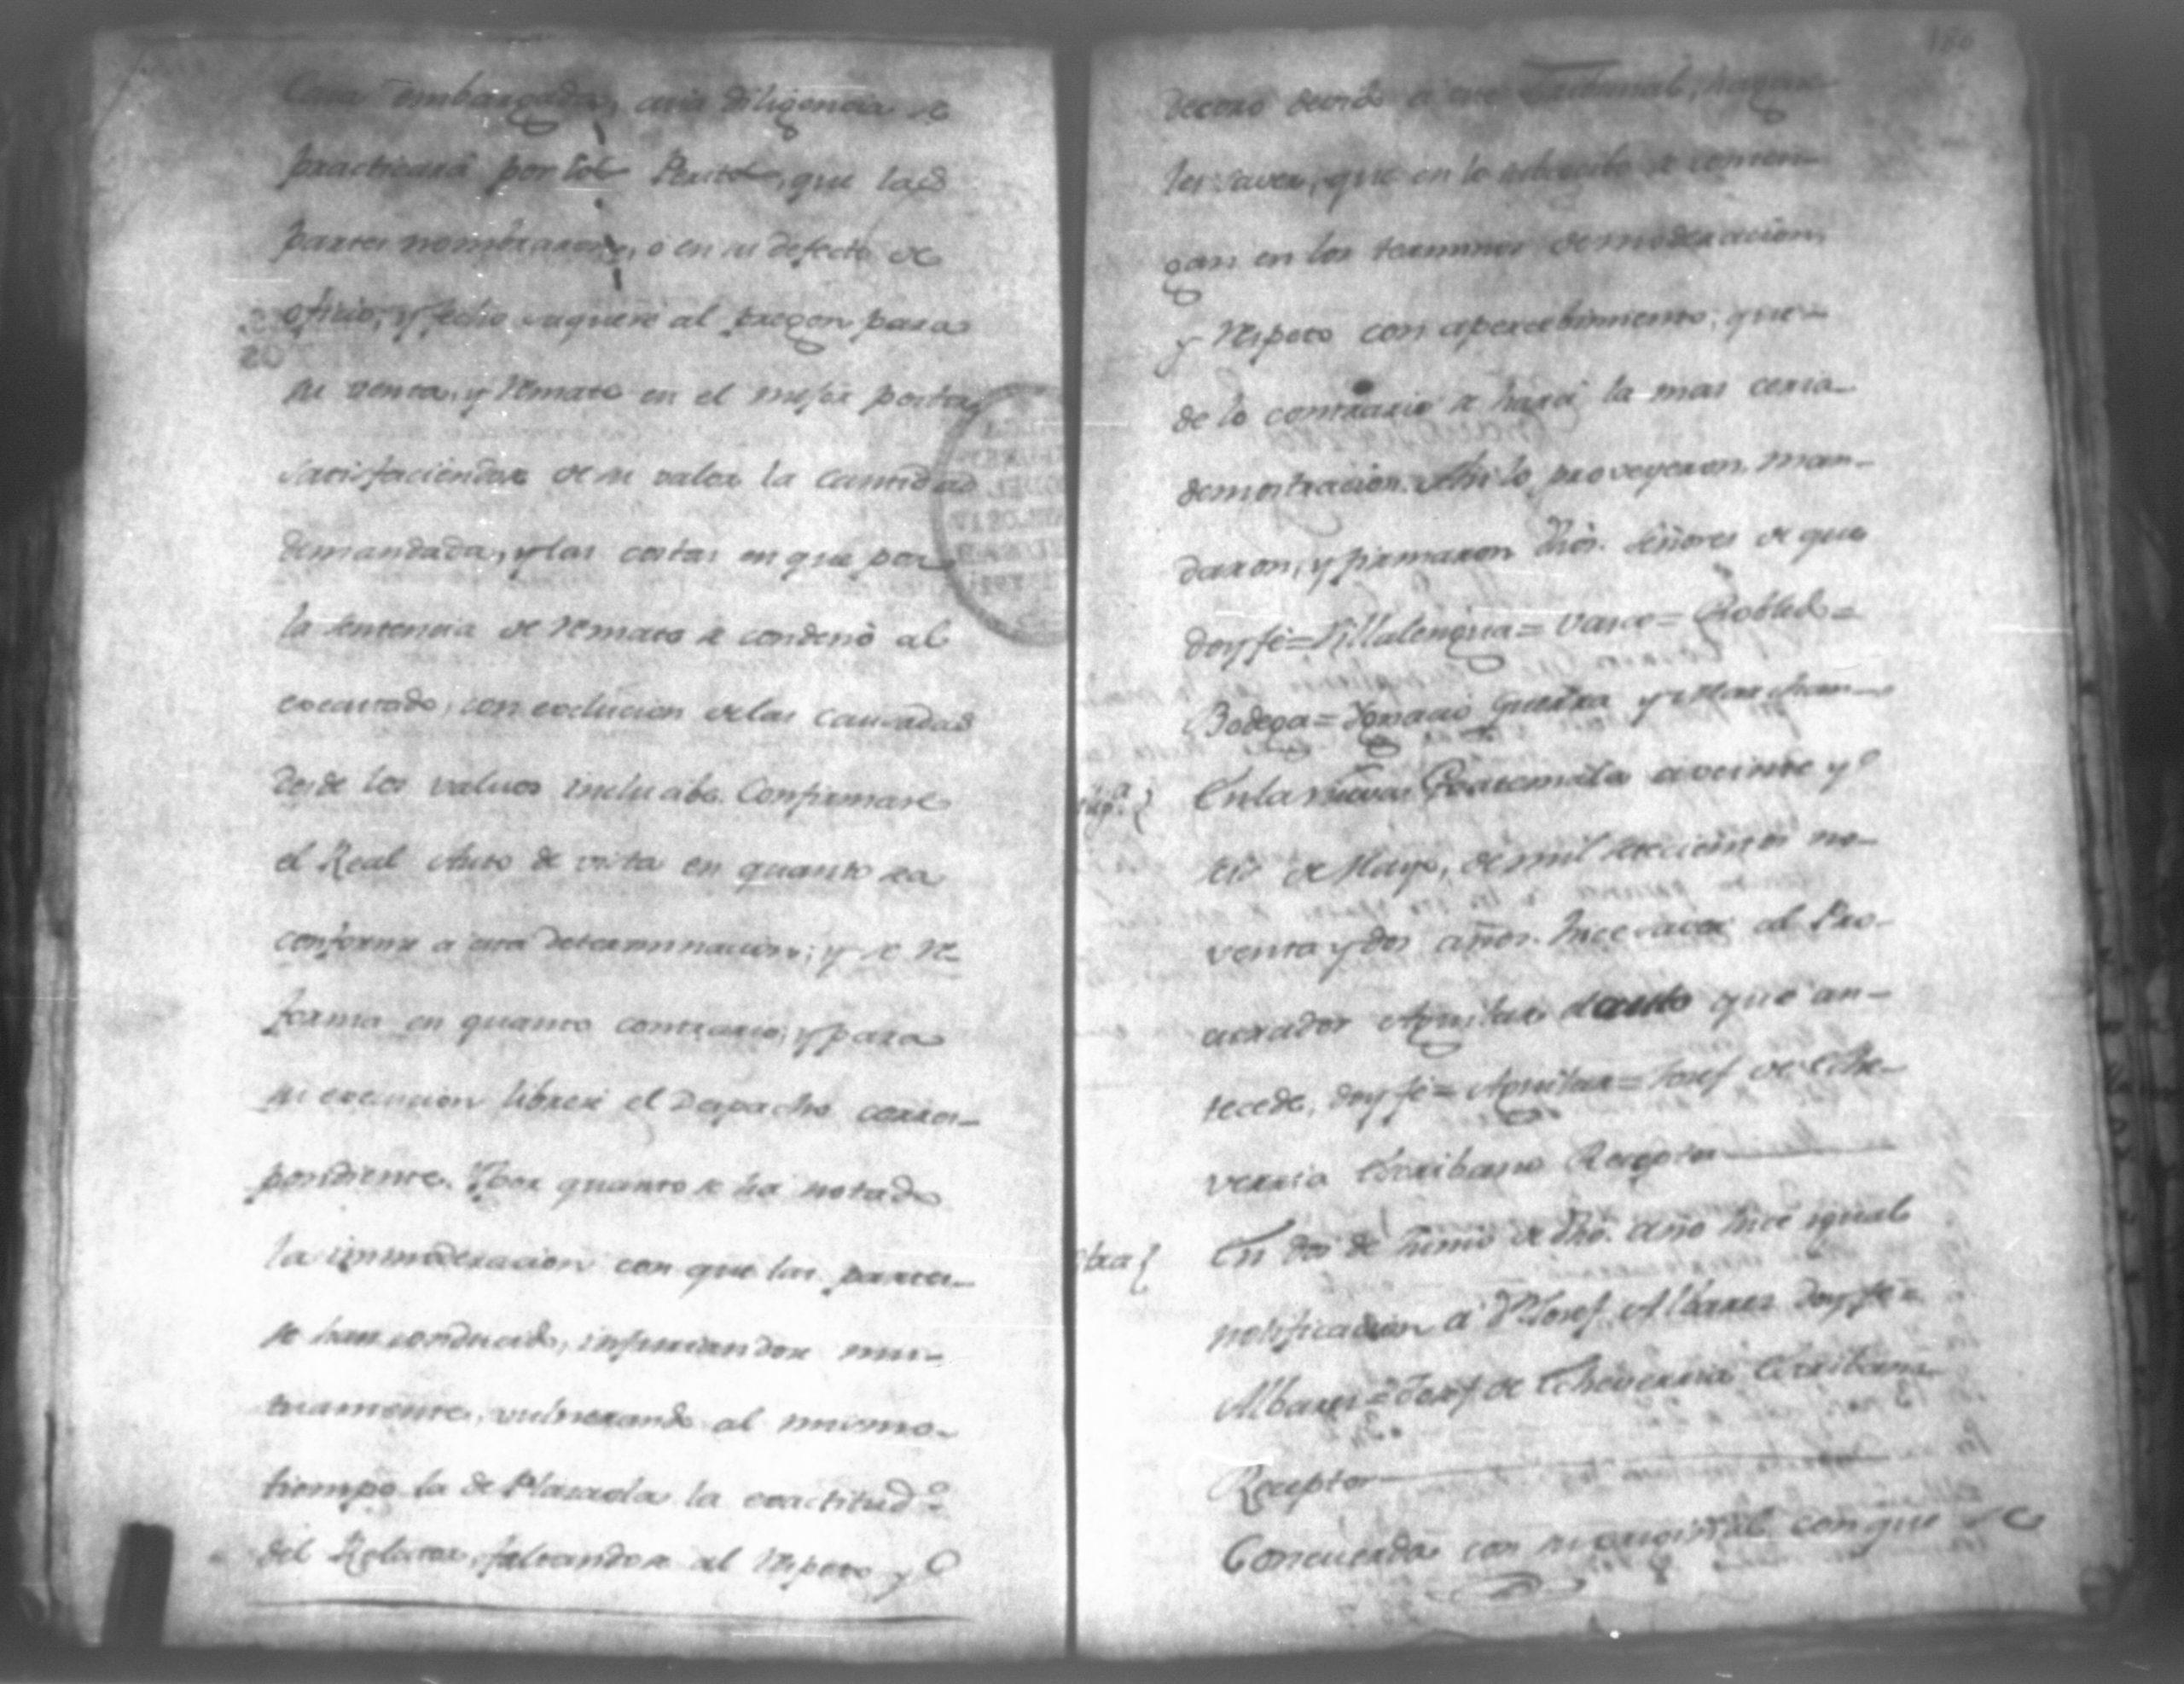 Casa embargada, cuia diligencia se
practicará por los Peritos, que las
partes nombraren, ó en su defecto de
oficio, y fecho saquese al pregon para
su venta, y Remate en el mejor postor,
satisfaciendose de su valor la cantidad
demandada, y las costas en que por
la sentencia de Remate se condenó al
executado, con exclucion delas causadas
desde los valuos inclusibe. Confirmase
el Real Auto de vista en quanto sea
conforme a esta determinacion; y se re-
forma en quanto contrario; y para
su execucion librese el Despacho corres-
pondiente. Y por quanto se ha notado
la immoderacion con que las partes
se han conducido, injuriandose mu-
tuamente, vulnerando al mismo
tiempo la de Plazaola la exactitud
del Relator, faltandose al respeto y
180
decoro devido a este Tribunal, hagase
les saver, que en lo subcesibo se conten-
gan en los terminos de moderacion,
y Respeto con apercebimiento, que
de lo contrario se hará la mas ceria
demostracion. Asi lo proveyeron, man-
daron, y firmaron dhos. Señores de que
doy fé = Villalengua = Vasco = Robledo =
Bodega = Ignacio Guerra y Marchan
En la Nueva Guatemala a veinte y
seis de Mayo, de mil setecientos no-
venta y dos años. hice saver al Pro-
curador Aguilar el auto que an-
tecede, doy fé = Aguilar = Josef de Eche-
verria Escribano Receptor
otra {
En dos de Junio de dho. año hice igual
notificacion a Dn. Josef Albarez doy fé =
Albarez = Josef de Echeverria Escribano
Receptor
Concuerda con su original con que se